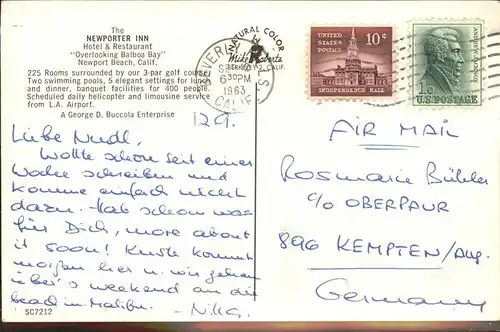 The
NEWPORTER INN
Hotel & Restaurant
"Overlooking Balboa Bay"
Newport Beach, Calif.
225 Rooms surrounded by our 3-par golf course.
Two swimming pools, 5 elegant settings for lunch
and dinner, banquet facilities for 400 people.
Scheduled daily helicopter and limousine service
from L.A. Airport.
A George D. Buccola Enterprise
NATURAL COLOR
Mike Roberts
BERKELEY 2, CALIF.
BEVERLY HILLS
SEP
6 30 PM
1963
CALIF.
UNITED STATES
POSTAGE
10¢
INDEPENDENCE HALL
1¢
U.S. POSTAGE
ANDREW JACKSON
12.9.
Liebe Nudl,
Wollte schon seit einer
Woche schreiben und
komme einfach nicht
dazu. Hab schon was
für Dich, more about
it soon! Kuste kommt
morgen her u. wir gehen
über's weekend an die
beach in Malibu.
SC7212
AIR MAIL
Rosmarie Bühler
c/o OBERPAUR
896 KEMPTEN/Allg.
Germany